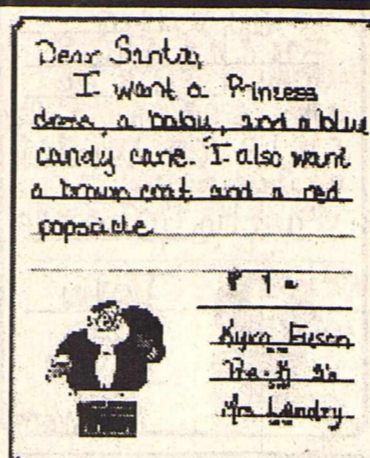 Dear Santa,
I want a Princess
dress, a baby, and a blue
candy cane. I also want
a brown coat and a red
popscicle
Mrs. Landry